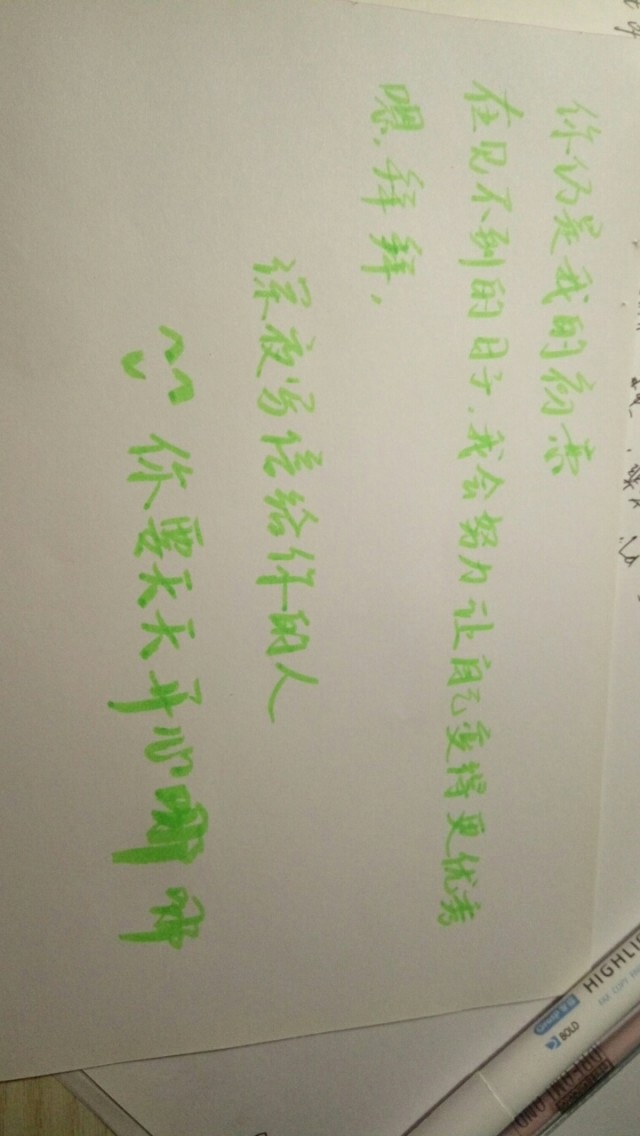 你仍是我的初恋
在见不到的日子，我会努力让自己变得更优秀
嗯，拜拜，
深夜写信给你的人
你要天天开心哪
HIGHLI
BOLD